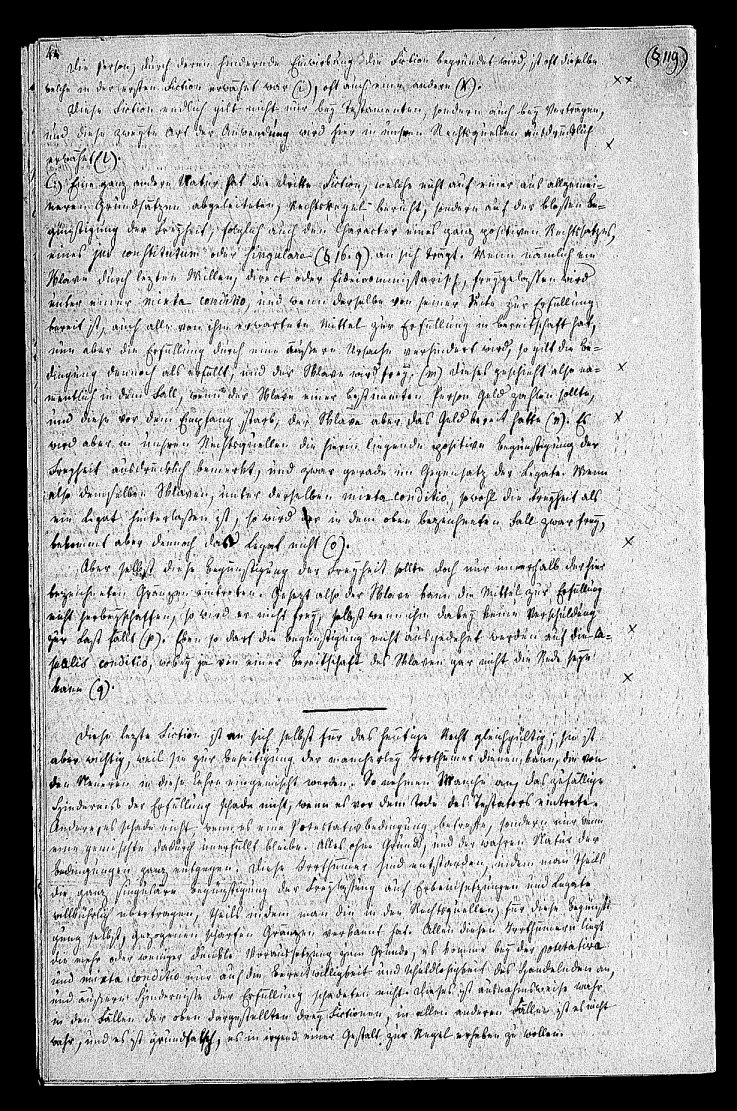 44
Die Person, durch deren hindernde Einwirkung die Fiction begründet wird, ist oft dieselbe (§ 119)
welche in der ersten Fiction erwähnt war (i), oft auch eine andere (k). ××
Diese Fiction endlich gilt nicht nur bey Testamenten, sondern auch bey Verträgen,
und diese zweyte Art der Anwendung wird hier in unsren Rechtsquellen ausdrücklich
erwähnt (l). ×
Eine ganz andere Natur hat die dritte Fiction, welche nicht auf einer aus allgemei-
neren Grundsätzen abgeleiteten, Rechtsregel beruht, sondern auf der bloßen Be-
günstigung der Freyheit, folglich auch den Character eines ganz positiven Rechtssatzes,
eines jus constitutum oder singulare (§ 16. q) an sich trägt. Wenn nämlich ein
Sklave durch letzten Willen, direct oder fideicommissarisch, freygelassen wird
unter einer mixta conditio, und wenn derselbe von seiner Seite zur Erfüllung
bereit ist, auch alle von ihm erwartete Mittel zur Erfüllung in Bereitschaft hat,
nun aber die Erfüllung durch eine äußere Ursache verhindert wird, so gilt die Be-
dingung dennoch als erfüllt, und der Sklave wird frey (m) Dieses geschieht also na- ×
mentlich in dem Fall, wenn der Sklave einer bestimmten Person Geld zahlen sollte,
und diese vor dem Empfang starb, der Sklave aber das Geld bereit hatte (n). Es ×
wird aber in unsren Rechtsquellen die hierin liegende positive Begünstigung der
Freyheit ausdrücklich bemerkt, und zwar gerade im Gegensatz der Legate. Wenn
also demselben Sklaven, unter derselben mixta conditio, sowohl die Freyheit als
ein Legat hinterlassen ist, so wird er in dem oben bezeichneten Fall zwar frey,
bekommt aber dennoch das Legat nicht (o). ×
Aber selbst diese Begünstigung der Freyheit sollte doch nur innerhalb der hier
bezeichneten Gränzen eintreten. Gesetzt also der Sklave kann die Mittel zur Erfüllung
nicht herbeyschaffen, so wird er nicht frey, selbst wenn ihm dabey keine Verschuldung
zur Last fällt (p). Eben so darf die Begünstigung nicht ausgedehnt werden auf die ca- ×
sualis conditio, wobey ja von einer Bereitschaft des Sklaven gar nicht die Rede seyn
kann (q). ×
Diese letzte Fiction ist an sich selbst für das heutige Recht gleichgültig; sie ist
aber wichtig, weil sie zur Beseitigung der mancherley Irrthümer dienen kann, die von
den Neueren in diese Lehre eingemischt werden. So nehmen Manche an, das zufällige
Hinderniß der Erfüllung schade nicht, wenn es vor dem Tode des Testators eintrete.
Andere, es schade nicht, wenn es eine Potestativbedingung betreffe, sondern nur wenn
eine gemischte dadurch unerfüllt bleibe. Alles ohne Grund, und der wahren Natur der
Bedingungen ganz entgegen. Diese Irrthümer sind entstanden, indem man theils
die ganz singuläre Begünstigung der Freylassung auf Erbeinsetzungen und Legate
willkührlich übertragen, theils indem man die in den Rechtsquellen für diese Begünsti-
gung selbst, gezogenen scharfen Gränzen verkannt hat. Allen diesen Irrthümern liegt
die mehr oder weniger dunkle Voraussetzung zum Grunde, es komme bey der potestativa
und mixta conditio nur auf die Bereitwilligkeit und Schuldlosigkeit des Handelnden an,
und äußere Hindernisse der Erfüllung schadeten nicht. Dieses ist ausnahmsweise wahr
in den Fällen der oben dargestellten drey Fictionen, in allen anderen Fällen ist es nicht
wahr, und es ist grundfalsch, es in irgend einer Gestalt zur Regel erheben zu wollen.